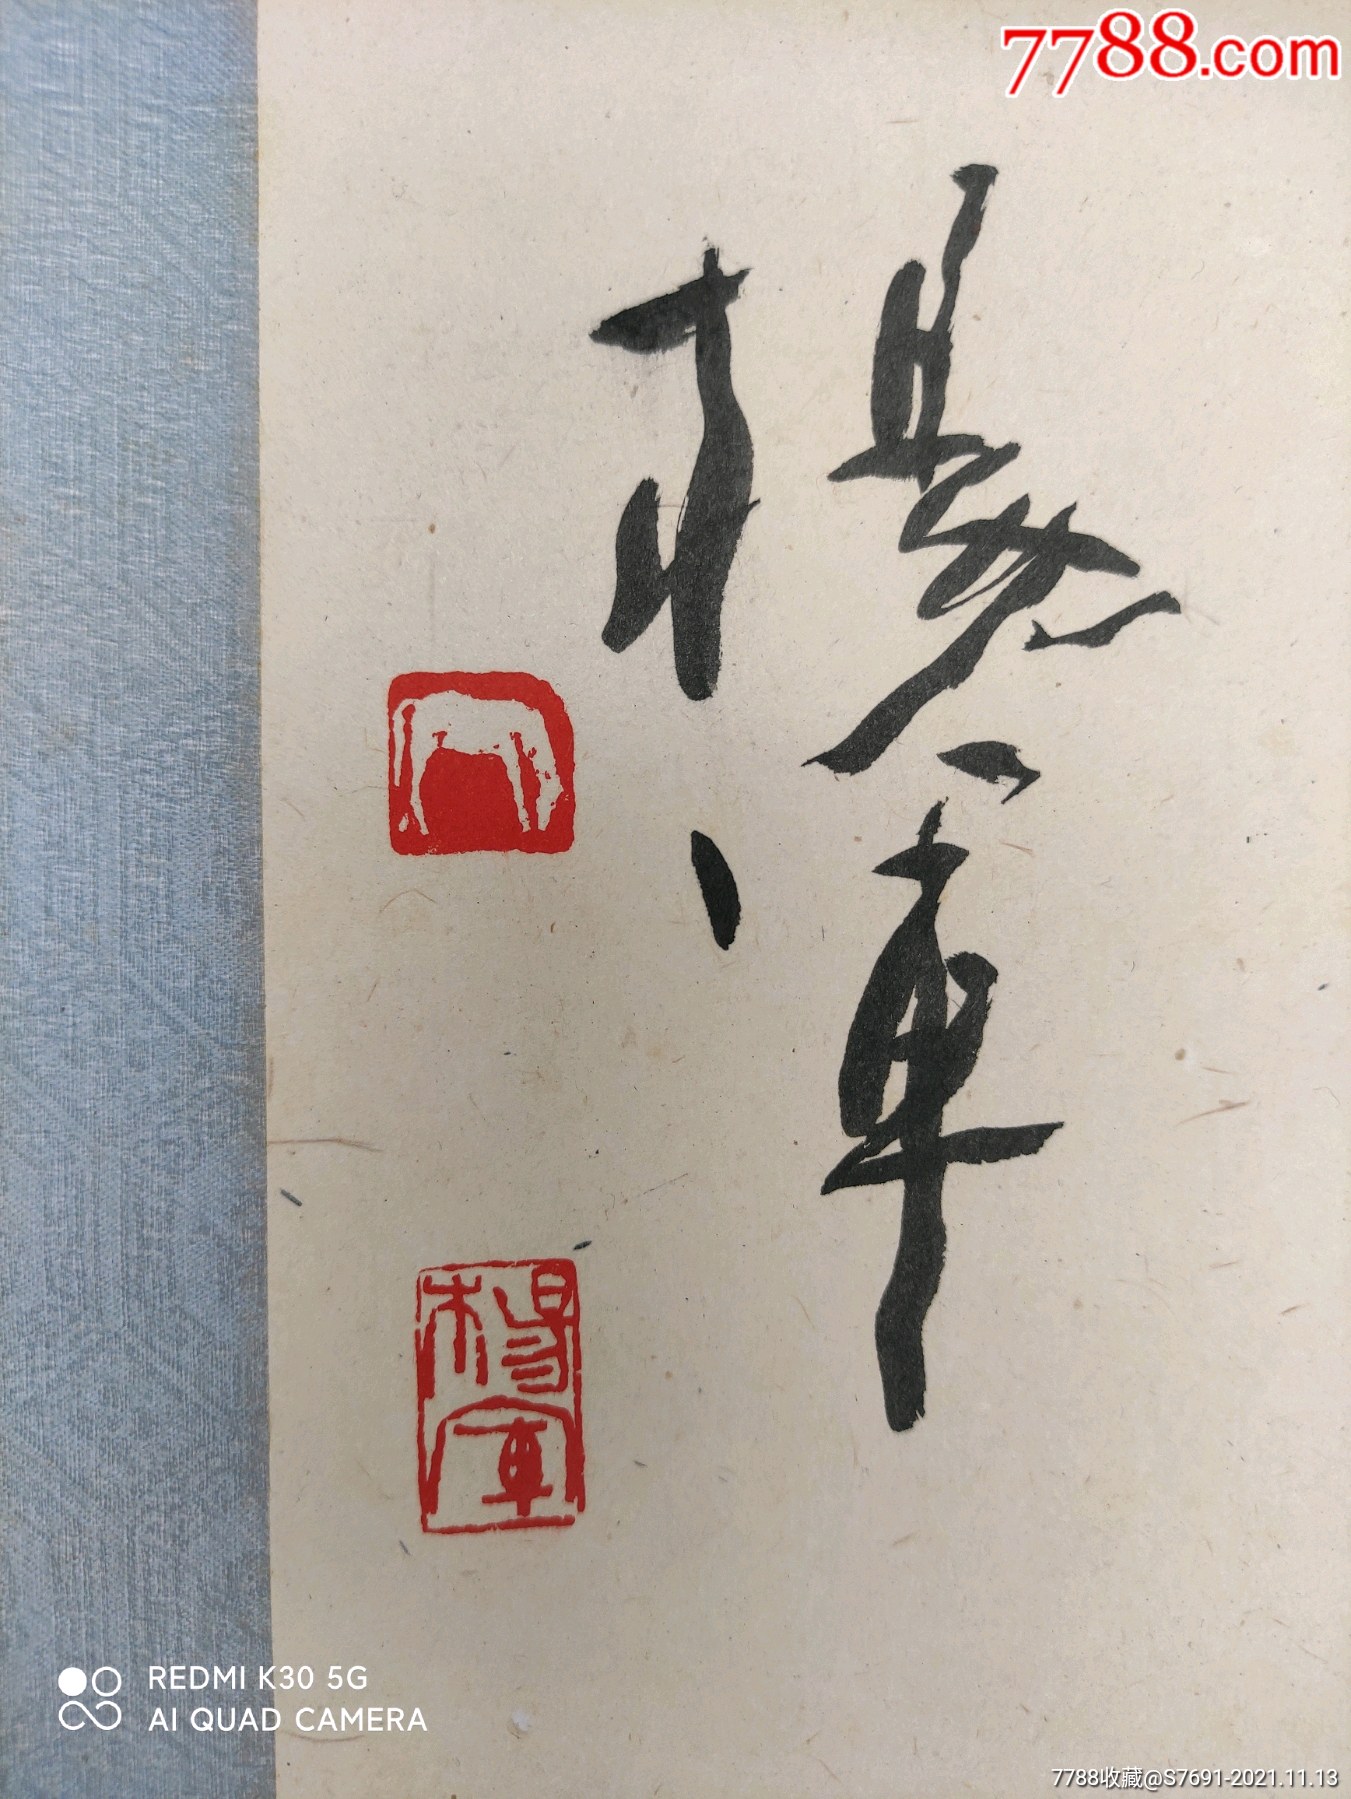 7788.com
楊軍
楊軍
REDMI K30 5G
AI QUAD CAMERA
7788收藏@S7691-2021.11.13